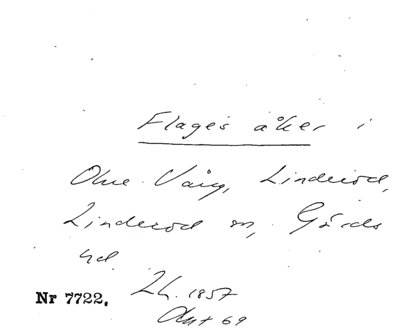 Flages åker i
Ohre Vång, Linderöd,
Linderöd sn, Gärds
hd
Nr 7722. Lh. 1857
Akt 69